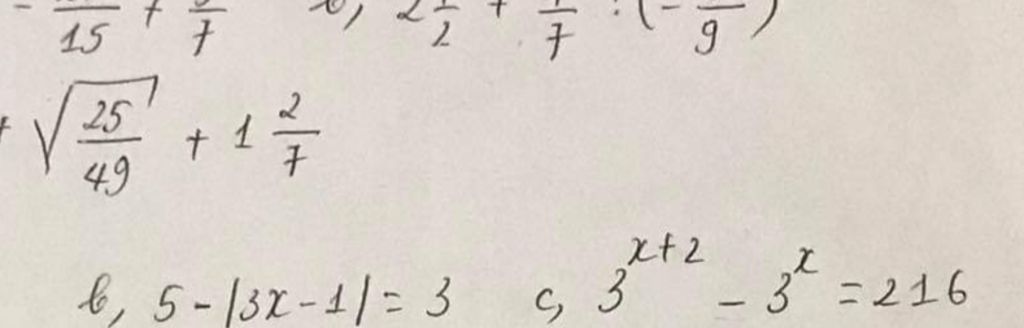 15 + 7 b, 2 1/2 + 7 : (- 9)
√(25/49) + 1 2/7
b, 5 - |3x - 1| = 3 c, 3^(x+2) - 3^x = 216